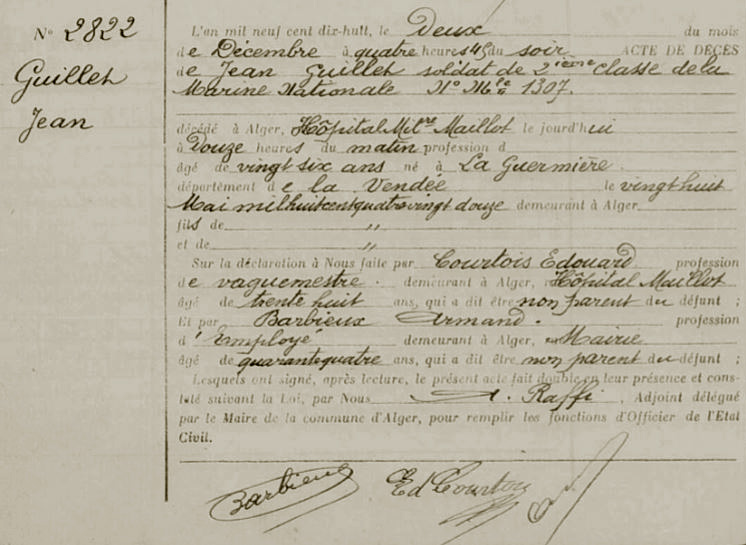 N° 2822
Guillet
Jean
L'an mil neuf cent dix-huit, le Deux du mois
de Décembre à quatre heures 45 du soir ACTE DE DÉCÈS
de Jean Guillet soldat de 2ième classe de la
Marine Nationale N° Mle 1307.
décédé à Alger, Hôpital Militre Maillot le jourd'hui
à Douze heures du matin profession d
âgé de vingt six ans né à La Guermière.
département de la Vendée le vingt huit
Mai mil huit cent quatre vingt douze demeurant à Alger
fils de "
et de "
Sur la déclaration à Nous faite par Courtois Edouard profession
de vaguemestre. demeurant à Alger, Hôpital Maillot
âgé de trente huit ans, qui a dit être non parent du défunt ;
Et par Barbieux Armand. profession
d'Employé demeurant à Alger, Mairie
âgé de quarante quatre ans, qui a dit être non parent du défunt ;
Lesquels ont signé, après lecture, le présent acte fait double en leur présence et cons-
taté suivant la Loi, par Nous A. Raffi, Adjoint délégué
par le Maire de la commune d'Alger, pour remplir les fonctions d'Officier de l'Etat
Civil.
Barbieux Ed Courtois